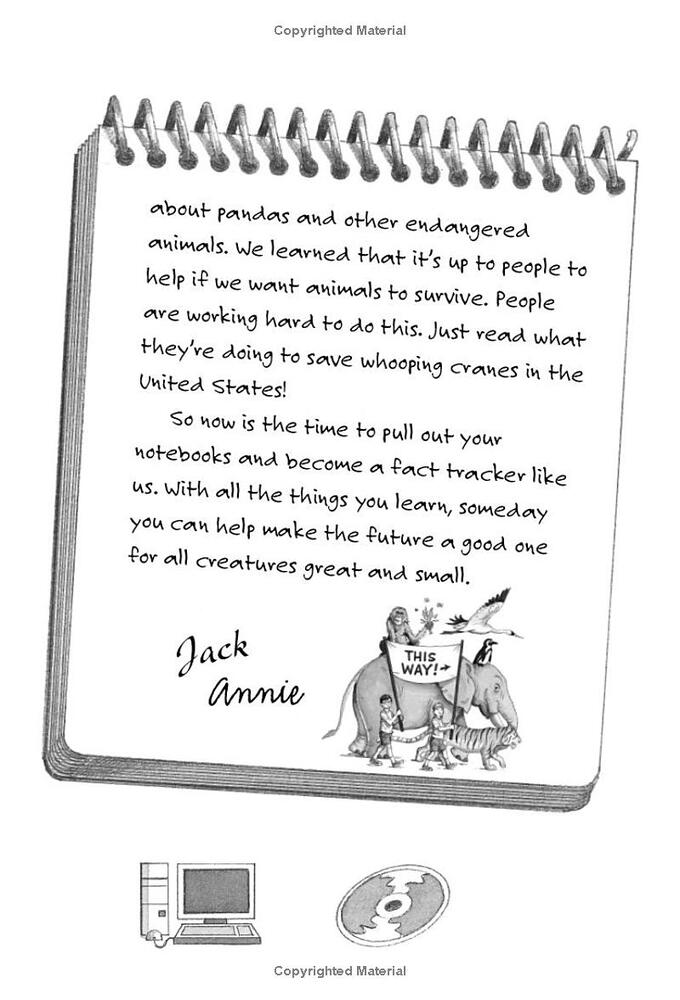 Copyrighted Material
about pandas and other endangered
animals. We learned that it's up to people to
help if we want animals to survive. People
are working hard to do this. Just read what
they're doing to save whooping cranes in the
United States!
So now is the time to pull out your
notebooks and become a fact tracker like
us. With all the things you learn, someday
you can help make the future a good one
for all creatures great and small.
Jack
Annie
THIS
WAY!→
Copyrighted Material